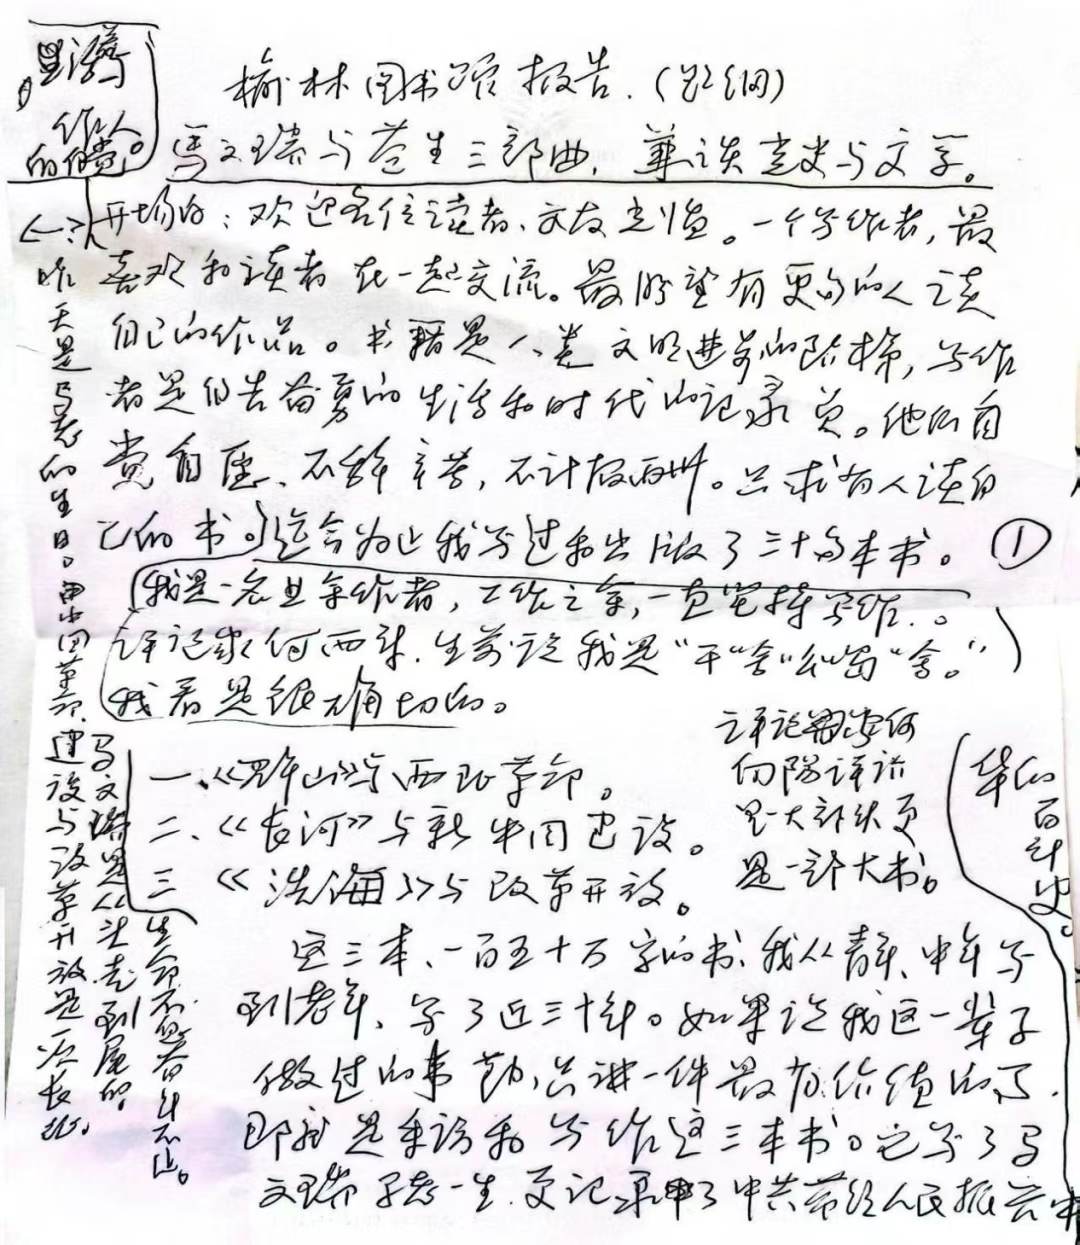 榆林图书馆报告.(提纲)
马文瑞与苍生三部曲,兼谈党史与文学。
开场白:欢迎各位读者、文友光临。一个写作者,最
喜欢和读者在一起交流。最盼望有更多的人读
自己的作品。书籍是人类文明进步的阶梯,写作
者是自告奋勇的生活和时代的记录员。他们自
觉自愿、不辞辛苦,不计报酬。只求有人读自
己的书。迄今为止我写过和出版了三十多本书。①
我是一名业余作者,工作之余,一直坚持写作.。
评论家何西来.生前说我是"干"舍"公"留"舍。"
我看是很准确的。
一、《群山》与西北革命。
二、《长河》与新中国建设。
三《沧海》与改革开放。
评论家
何向阳评价
是一大部头更
是一部大书。
华的
百
年
史。
这三本、一百五十万字的书,我从青年、中年写
到老年、写了近三十年。如果说我这一辈子
做过的事,只讲一件最有价值的了.
那就是采访和写作这三本书。它写了马
文瑞同志一生.更记录了中共带领人民振兴中
作人
的
昨天是马老的生日。由中国革命.
建设与改革开放是一次长征.
马文瑞是从头走到尾的.
生命不息奋斗不止。